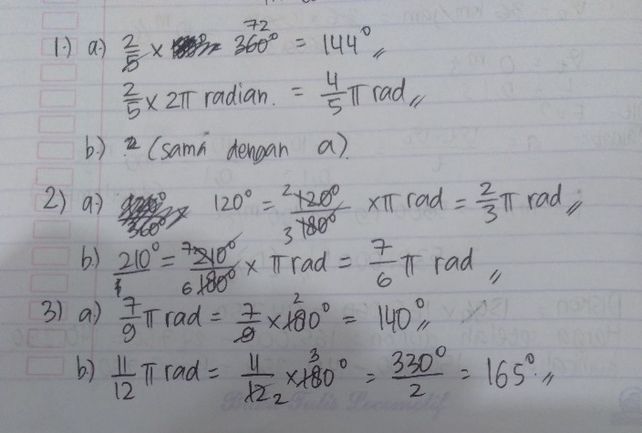 72
1.) a) 2/5 x 360° = 144°,,
2/5 x 2π radian. = 4/5 π rad,,
b) 2 (sama dengan a).
2) a) 120° = 2 120°/3 180° x π rad = 2/3 π rad,,
b) 210° = 7 210°/6 180° x π rad = 7/6 π rad,,
3) a) 7/9 π rad = 7/9 x 180° = 140°,,
b) 11/12 π rad = 11/12 2 x 3 180° = 330°/2 = 165°,,